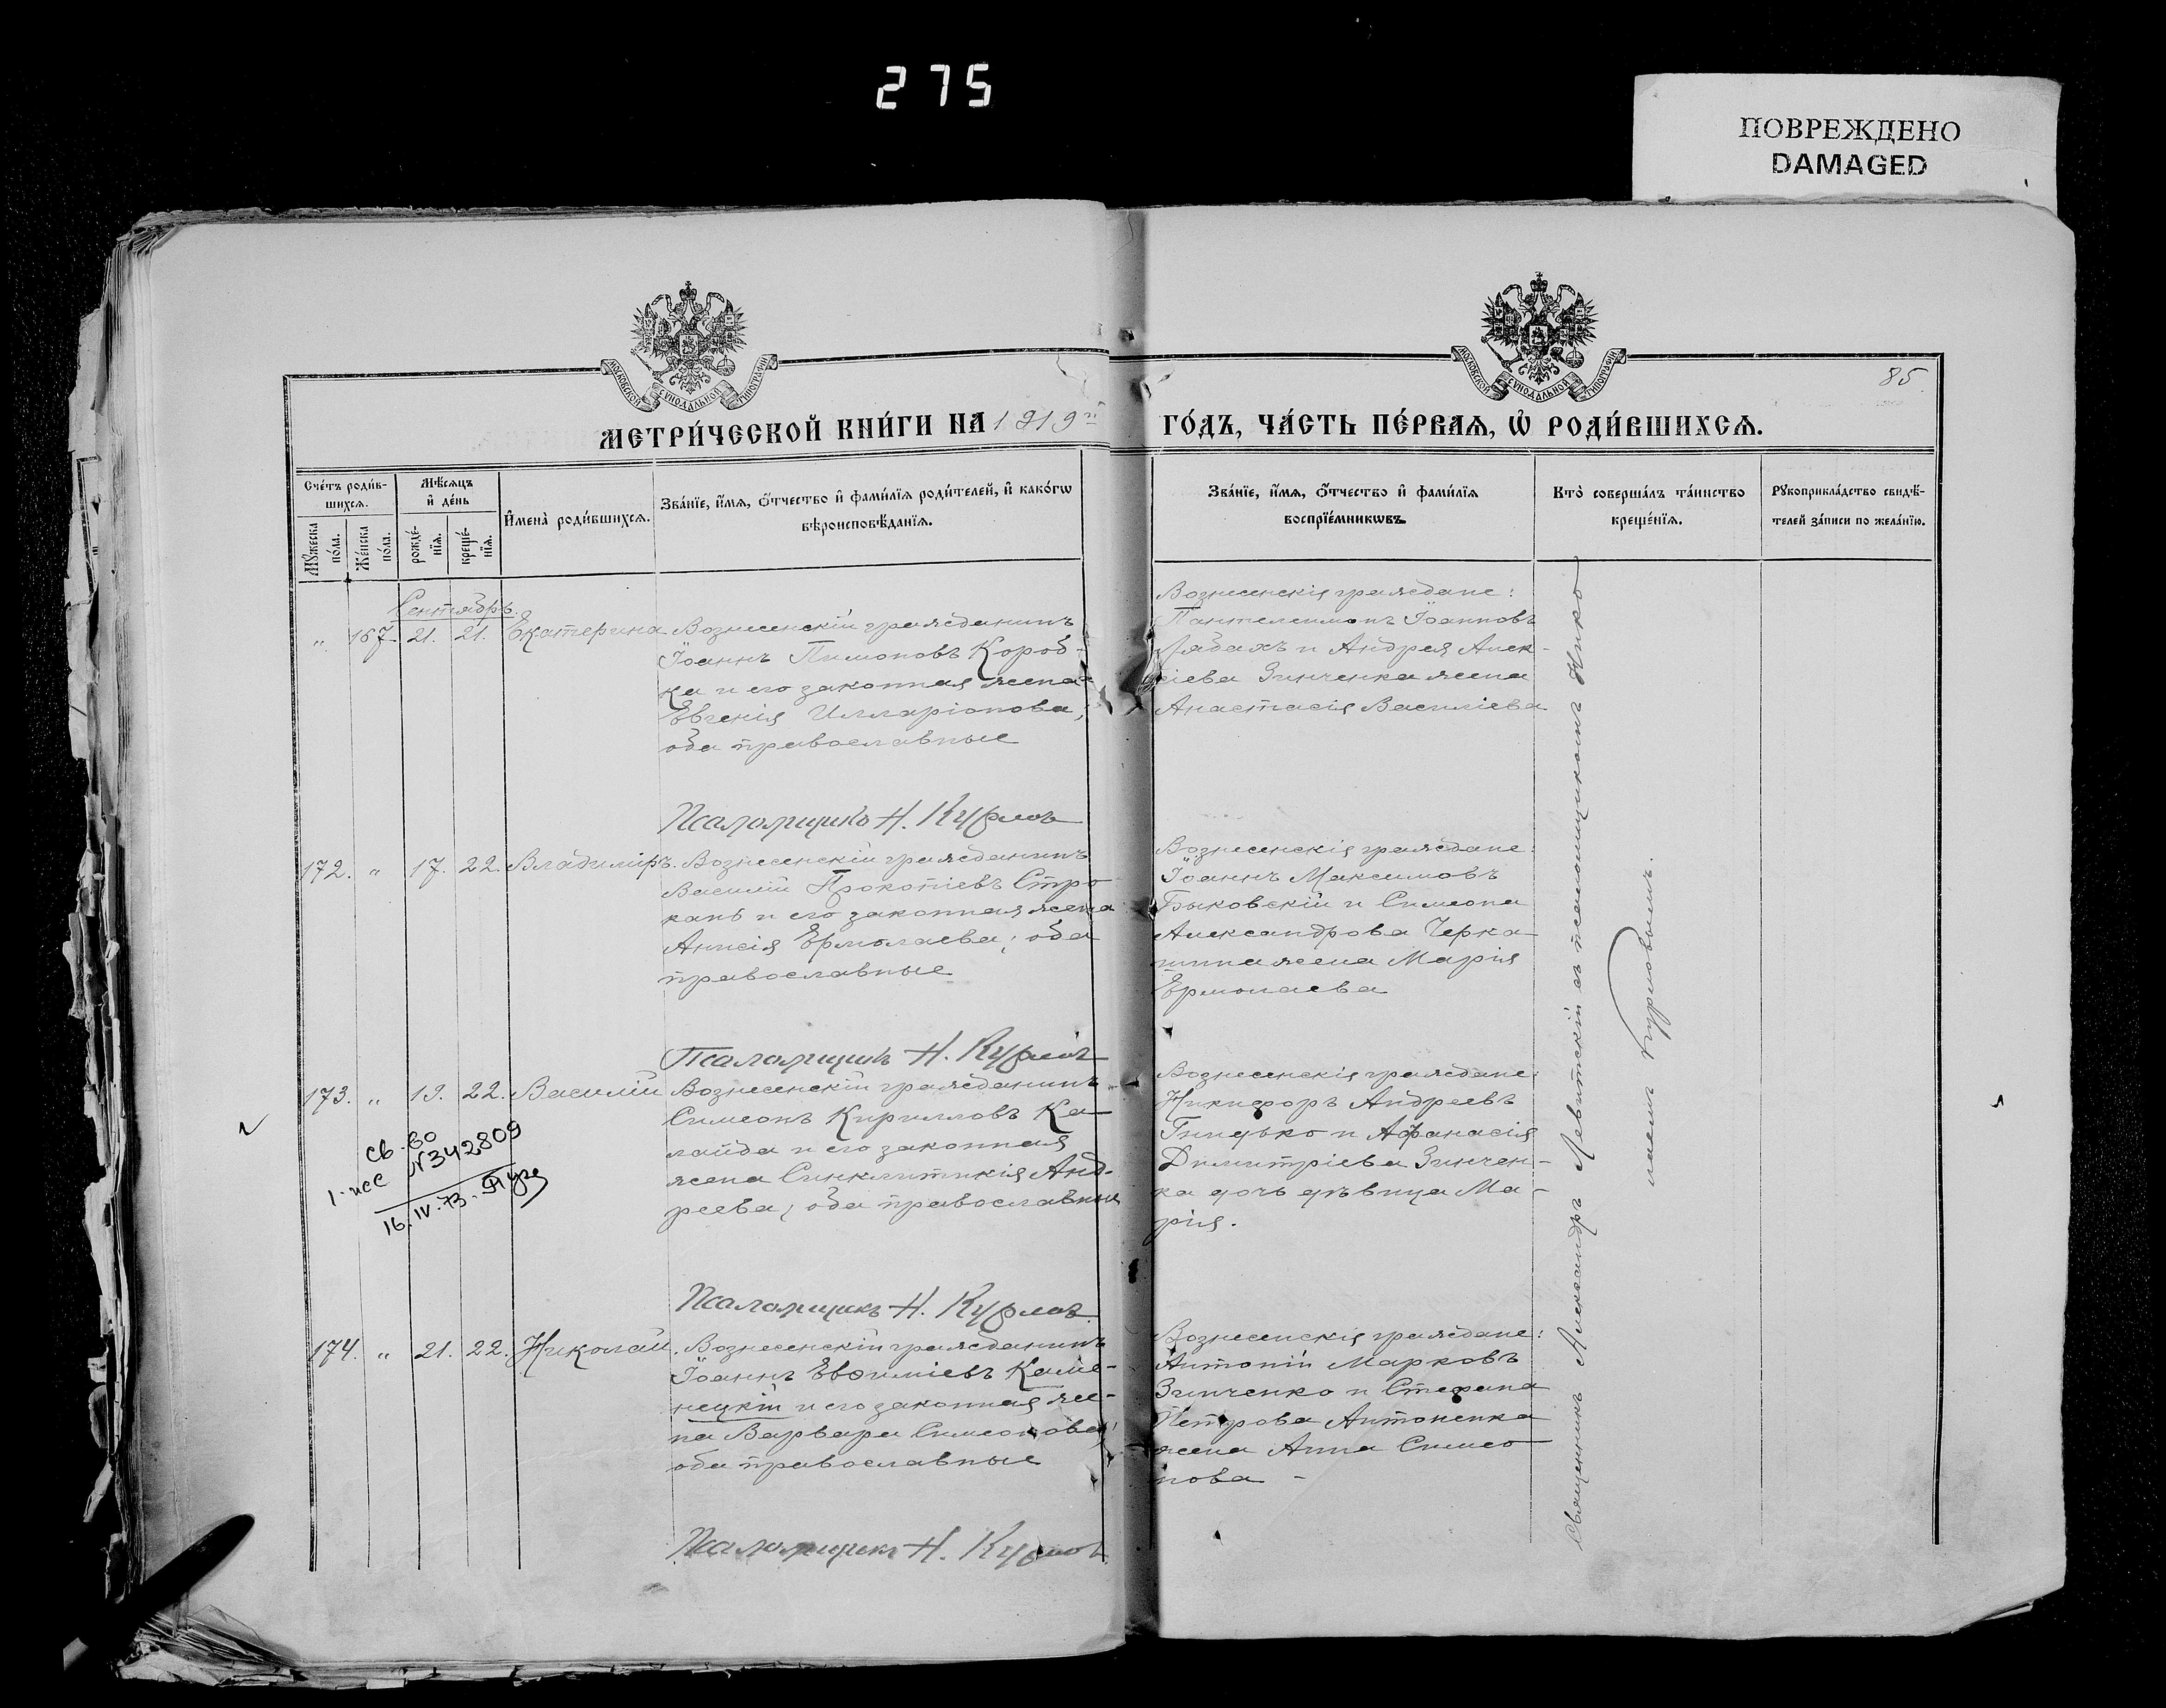 275
ПОВРЕЖДЕНО
DAMAGED
МОСКОВСКОЙ СУНОДАЛЬНОЙ ТИПОГРАФІИ
МОСКОВСКОЙ СУНОДАЛЬНОЙ ТИПОГРАФІИ
85
МЕТРИ́ЧЕСКОЙ КНИ́ГИ НА 1919й ГО́ДЪ, ЧА́СТЬ ПЕ́РВАѦ, Ѡ҆ РОДИ́ВШИХСѦ.
Сче́тъ роди́в-
шихсѧ.
Мꙋ́жеска
по́ла.
Же́нска
по́ла.
Мѣ́сѧцъ
и҆ де́нь
рожде́-
нїѧ.
креще́-
нїѧ.
И҆мена̀ роди́вшихсѧ.
Зва́нїе, и҆́мѧ, ѻ҆́тчество и҆ фами́лїѧ роди́телей, и҆ како́гѡ
вѣроисповѣ́данїѧ.
Зва́нїе, и҆́мѧ, ѻ҆́тчество и҆ фами́лїѧ
воспрїе́мникѡвъ.
Кто̀ соверша́лъ та́инство
креще́нїѧ.
Рꙋкоприкла́дство свидѣ́-
телей за́писи по жела́нїю.
Сентябрь.
" 167. 21. 21. Екатерина
Вознесенскій гражданинъ
Іоаннъ Пимоновъ Короб-
ка и его законная жена
Евгенія Илларіонова;
оба православные
Псаломщикъ Н. Курлов
Вознесенскія граждане:
Пантелеимонъ Іоанновъ
Лябахъ и Андрея Алек-
сіева Зинченка жена
Анастасія Василіева
172. " 17. 22. Владиміръ.
Вознесенскій гражданинъ
Василій Прокопіевъ Стро
канъ и его законная жена
Анисія Ермолаева; оба
православные
Псаломщикъ Н. Курлов
Вознесенскія граждане:
Іоаннъ Максимовъ
Быковскій и Симеона
Александрова Черка-
шина жена Марія
Ермолаева
173. " 19. 22. Василій
Вознесенскій гражданинъ
Симеонъ Кирилловъ Ка-
лайда и его законная
жена Синклитикія Анд-
реева; оба православные
Псаломщикъ Н. Курлов
Вознесенскія граждане:
Никифоръ Андреевъ
Гницько и Афанасія
Димитріева Зинчен-
ка дочь дѣвица Ма-
рія.
св-во
N 342809
16.IV.73.
174. " 21. 22. Николай.
Вознесенскій гражданинъ
Іоаннъ Евѳиміевъ Каме-
нецкій и его законная же-
на Варвара Симеонова;
оба православные
Псаломщикъ Н. Курлов
Вознесенскія граждане:
Антоній Марковъ
Зинченко и Стефана
Петрова Антоненка
жена Анна Симео
нова -
Священникъ Александръ Левитскій съ псаломщикомъ Нико
лаемъ Курловымъ.